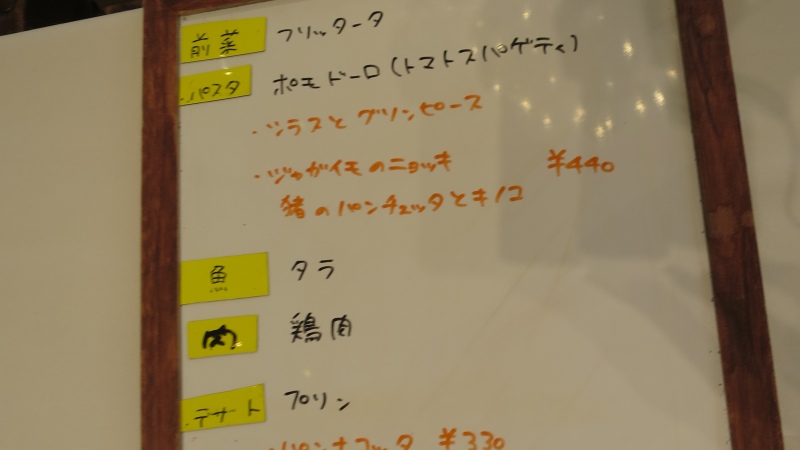 前菜 フリッタータ
パスタ ポモドーロ(トマトスパゲティ)
・シラスとグリンピース
・ジャガイモのニョッキ ¥440
猪のパンチェッタとキノコ
魚 タラ
肉 鶏肉
デザート プリン
パンナコッタ ¥330